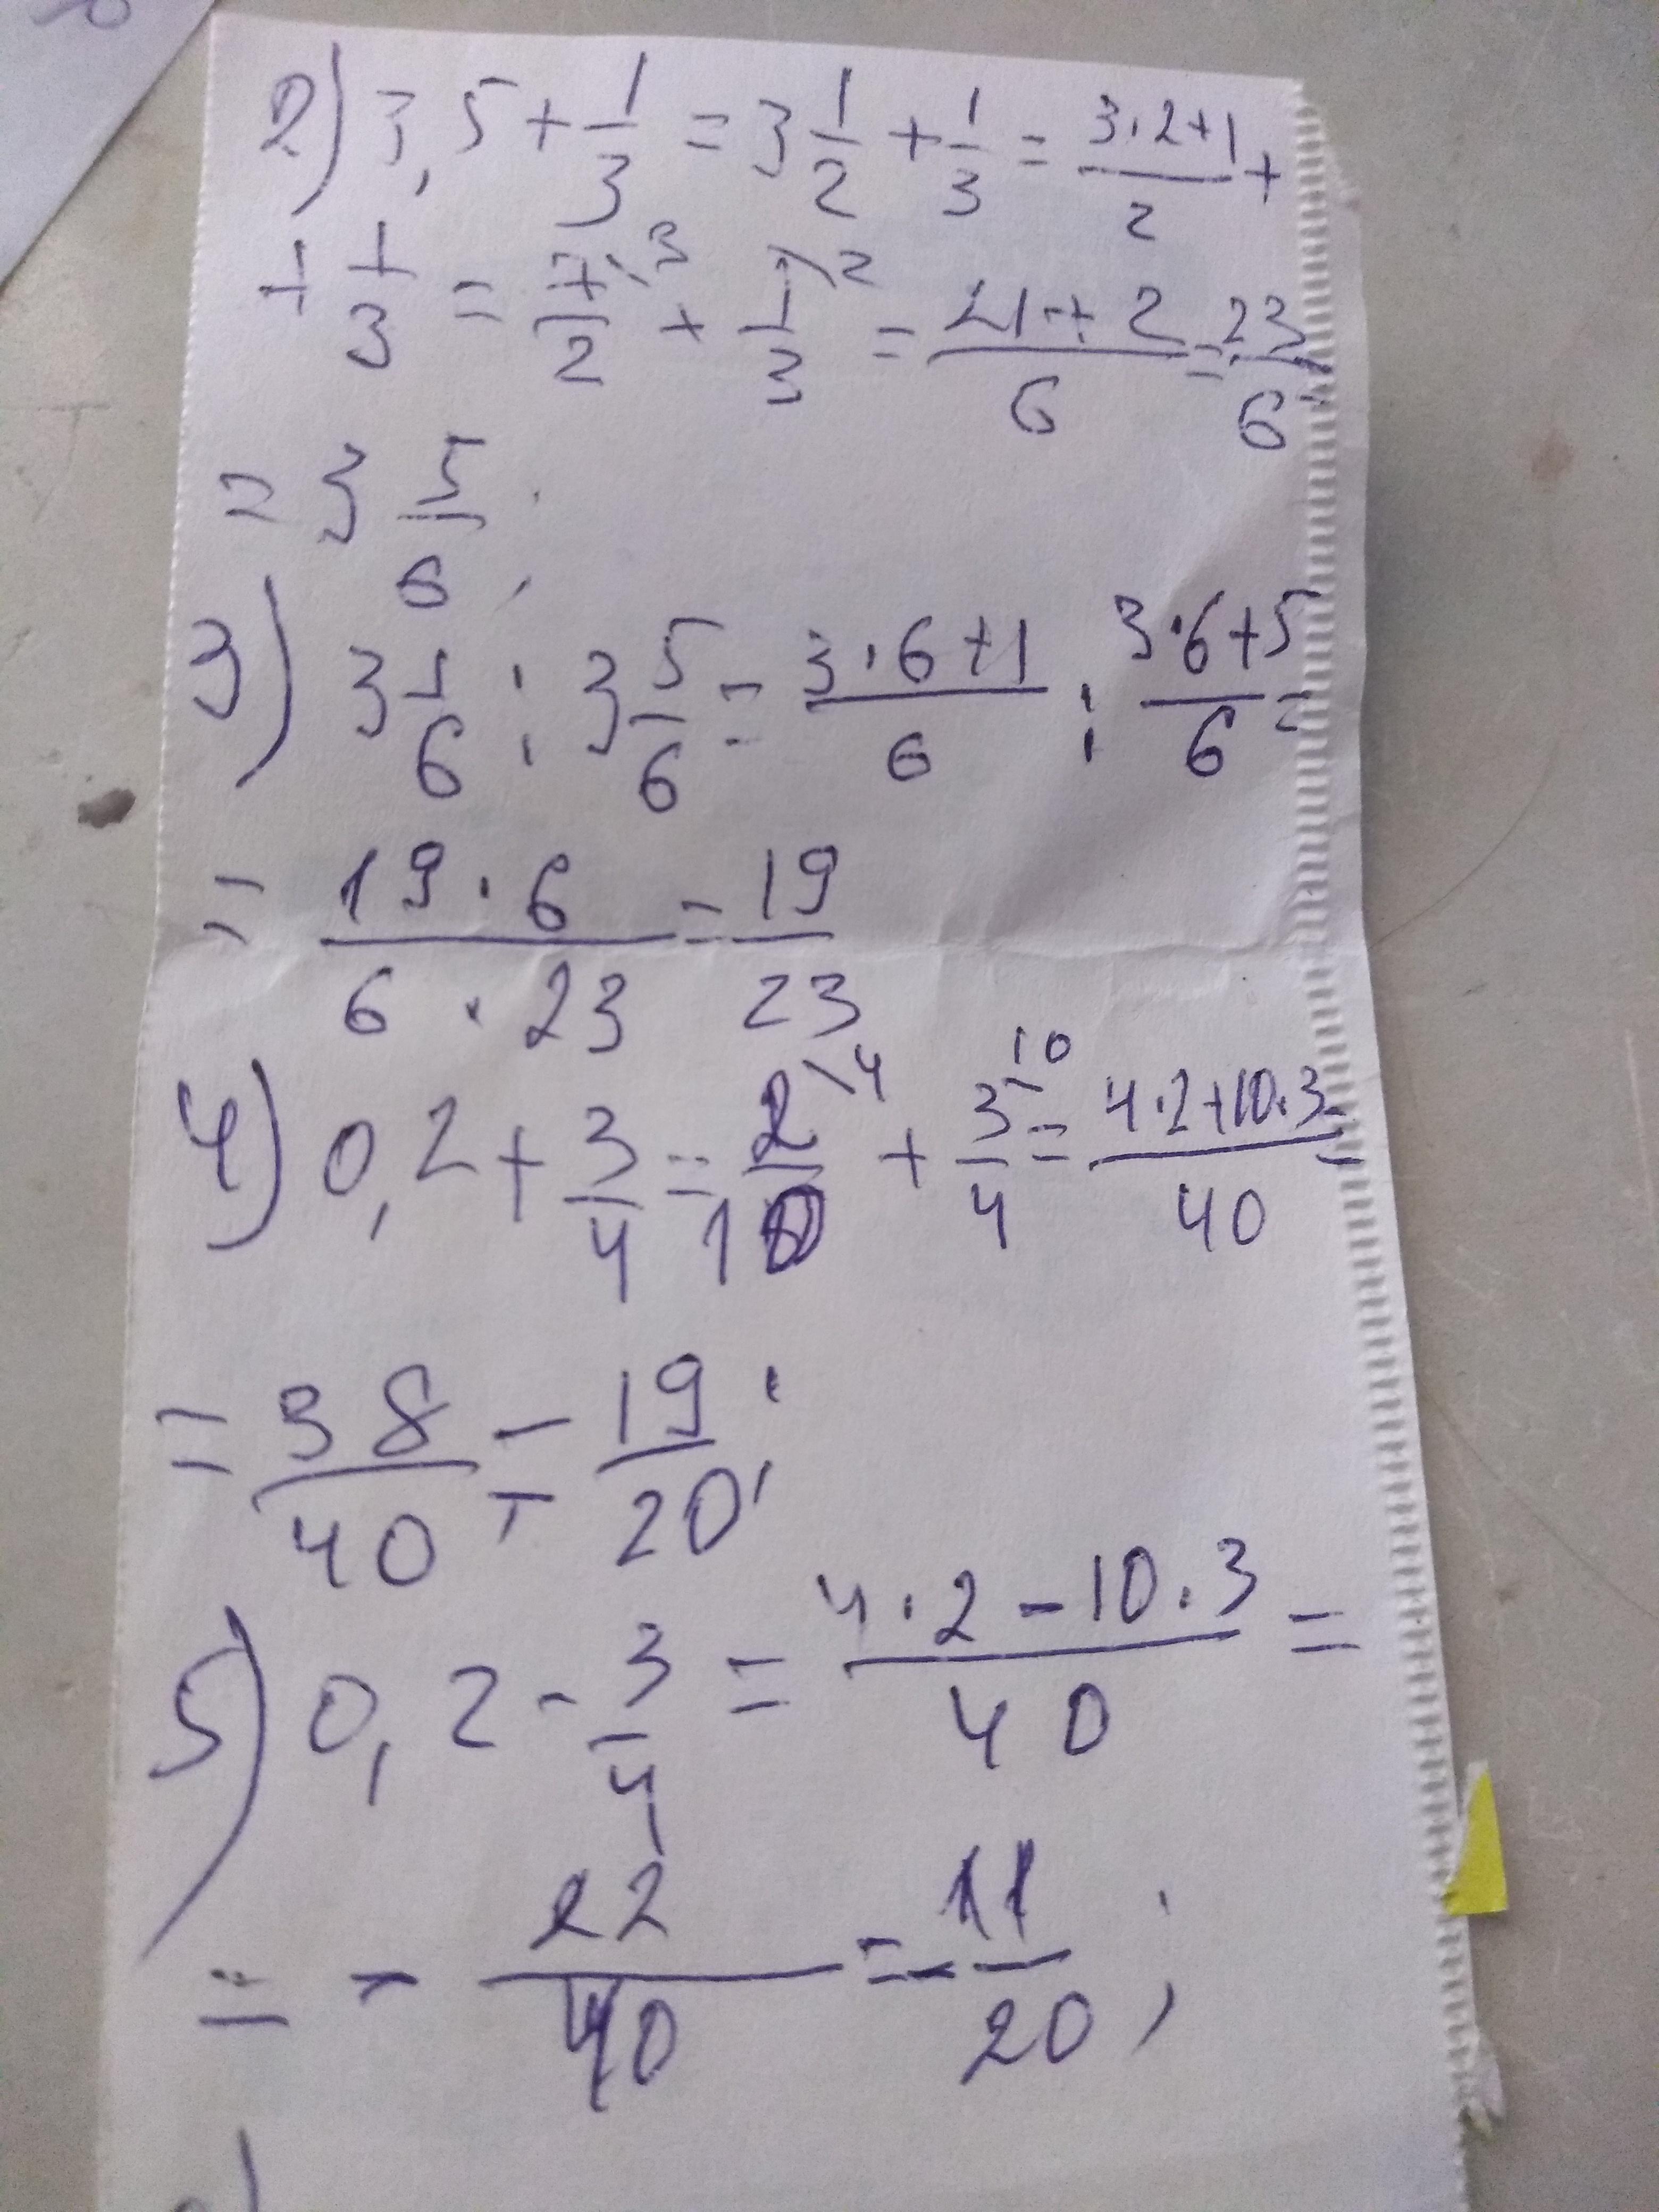 2) 3,5 + 1/3 = 3 1/2 + 1/3 = (3·2+1)/2 +
+ 1/3 = 7/2 \3 + 1/3 \2 = (21+2)/6 = 23/6
= 3 5/6;
3) 3 1/6 : 3 5/6 = (3·6+1)/6 : (3·6+5)/6 =
= (19·6)/(6·23) = 19/23
4) 0,2 + 3/4 = 2/10 \4 + 3/4 \10 = (4·2+10·3)/40 =
= 38/40 = 19/20;
5) 0,2 - 3/4 = (4·2-10·3)/40 =
= - 22/40 = - 11/20;